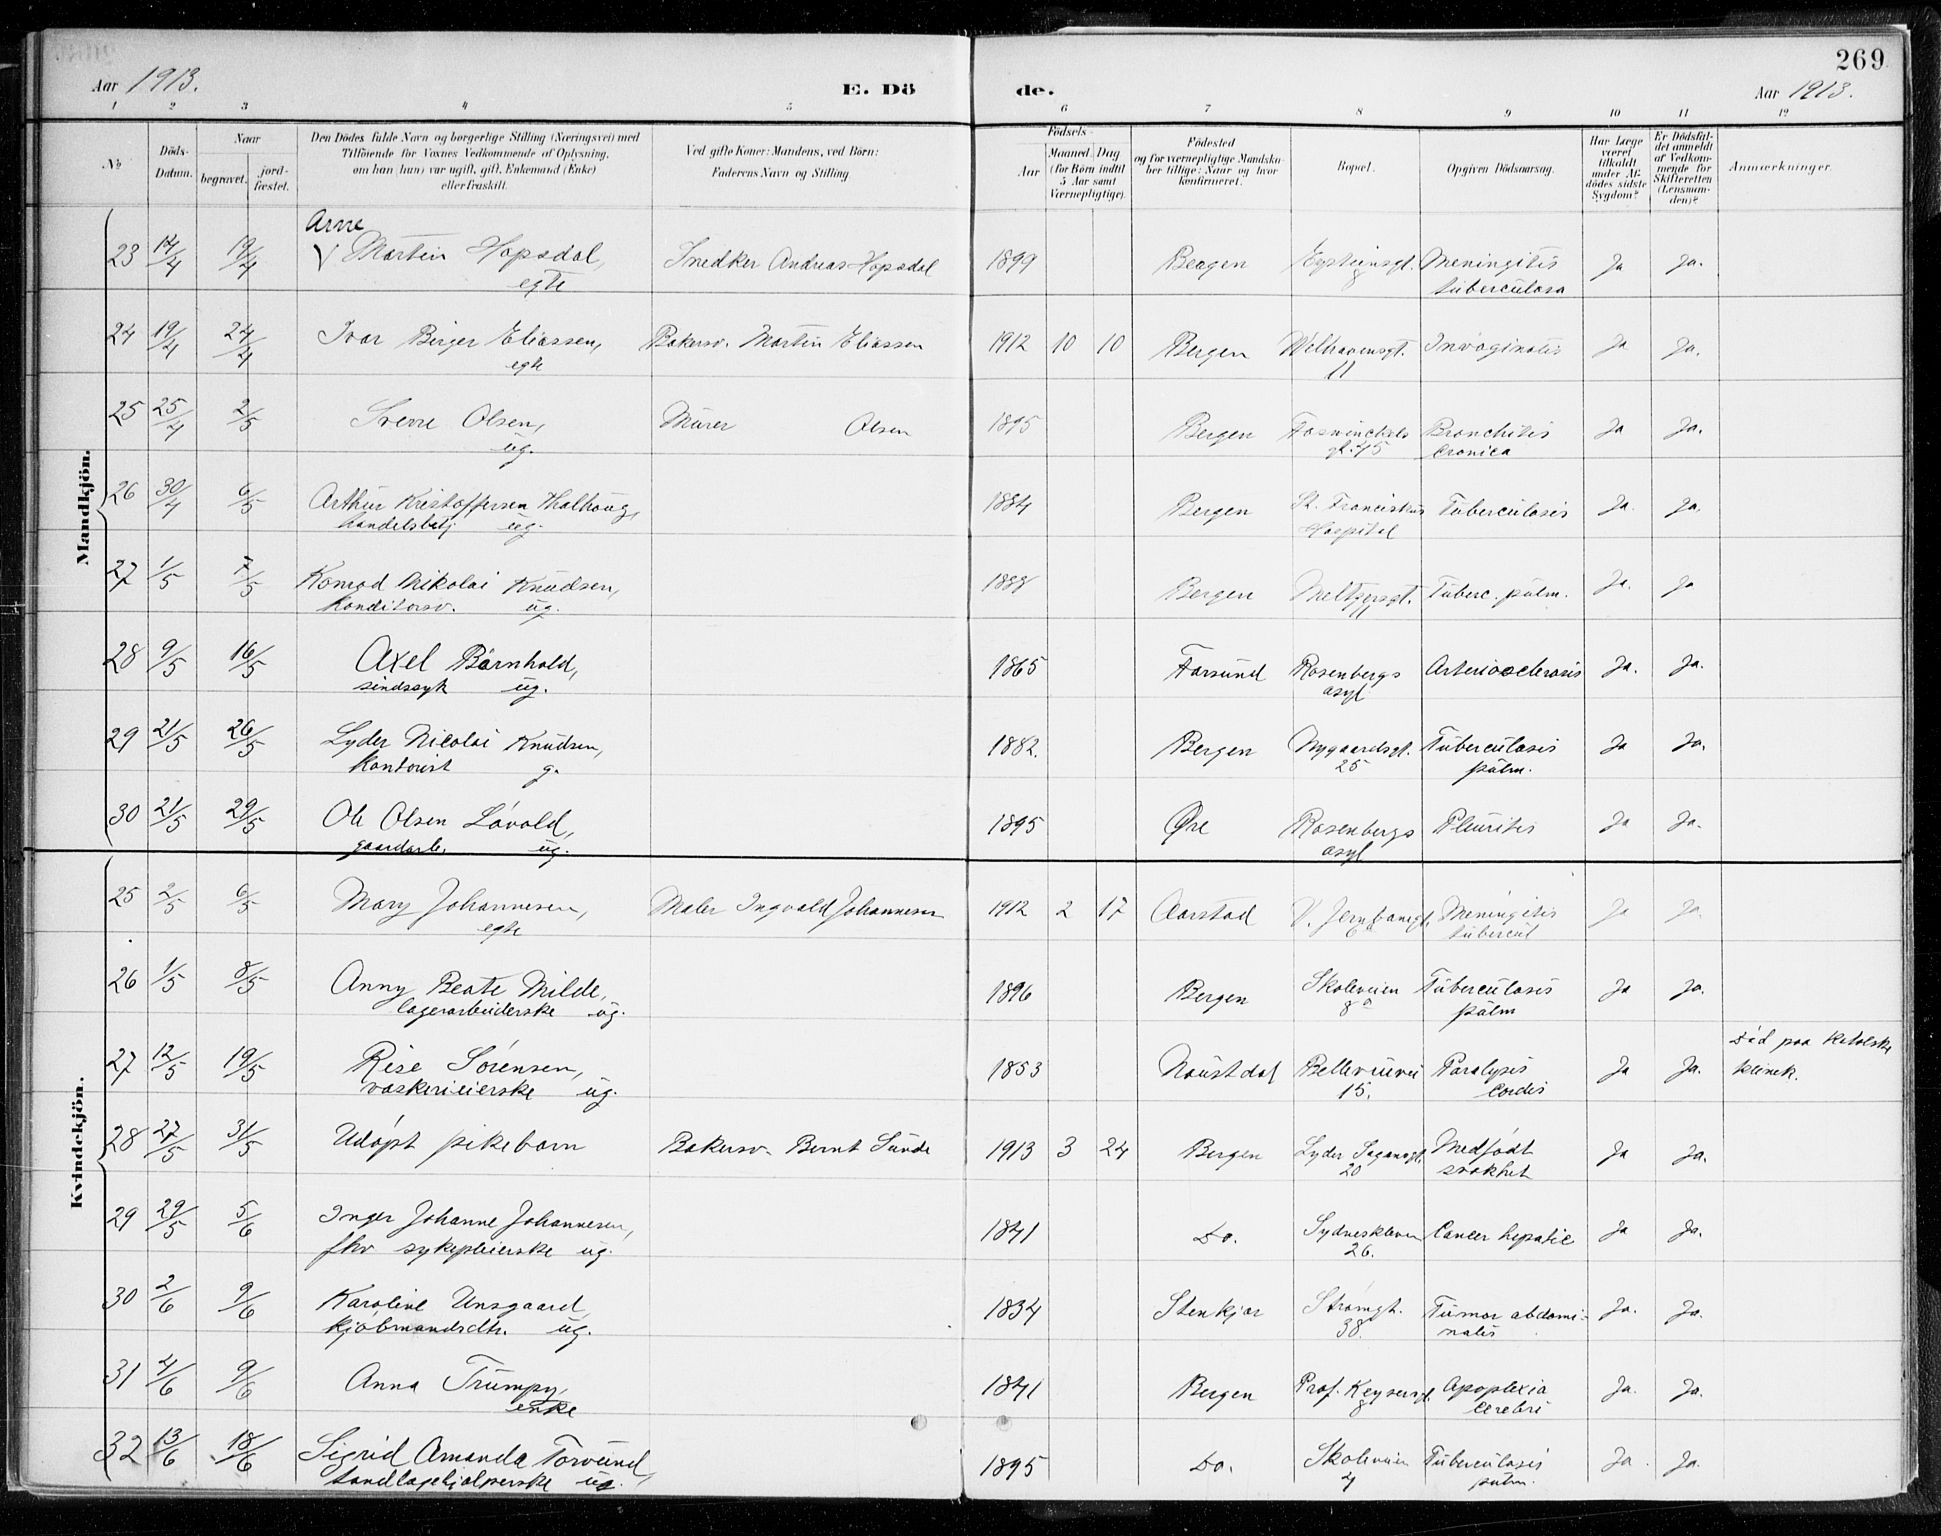 269
Aar 1913. E. Dö de. Aar 1913.
1 2 3 4 5 6 7 8 9 10 11 12
No
Döds-Datum.
Naar
begravet.
jord-fæstet.
Den Dödes fulde Navn og borgerlige Stilling (Næringsvei) med
Tilföiende for Voxnes Vedkommende af Oplysning,
om han (hun) var ugift, gift, Enkemand (Enke)
eller fraskilt.
Ved gifte Koner: Mandens, ved Börn:
Faderens Navn og Stilling.
Födsels-
Aar
Maaned Dag
(for Börn indtil
5 Aar samt
Værnepligtige).
Födested
og for værnepligtige Mandska-
ber tillige: Naar og hvor
konfirmeret.
Bopæl.
Opgiven Dödsaarsag.
Har Læge
været
tilkaldt
under Af-
dödes sidste
Sygdom?
Er Dödsfal-
det anmeldt
af Vedkom-
mende for
Skifteretten
(Lensman-
den)?
Anmærkninger.
Mandkjön.
Arne
23 17/4 19/4 Martin Hopsdal, Snedker Andreas Hopsdal 1899 Bergen Eysteinsgt. Meningitis Ja Ja.
egte 8 tuberculosa
24 19/4 24/4 Ivar Birger Eliassen, Bakersv. Martin Eliassen 1912 10 10 Bergen Welhavensgt. Invaginatis Ja Ja.
egte 11
25 25/4 2/5 Sverre Olsen, Murer Olsen 1895 Bergen Foswinckels Bronchitis Ja Ja.
ug. gt. 45 cronica
26 30/4 6/5 Arthur Kristoffersen Halhoug, 1884 Bergen St. Franciskus Tuberculosis Ja. Ja.
handelsbetj ug. Hospital
27 1/5 7/5 Konrad Nikolai Knudsen, 1888 Bergen Meltzersgt. Tuberc. pulm. Ja. Ja
konditorsv. ug. 11
28 9/5 16/5 Axel Bärnhold, 1865 Farsund Rosenbergs Arteriosclerosis Ja. Ja.
sindssyk ug. asyl
29 21/5 26/5 Lyder Nicolai Knudsen, 1882. Bergen Nygaardsgt. Tuberculosis Ja Ja.
kontorist g. 25 pulm.
30 21/5 29/5 Ole Olsen Lóvold, 1895 Øre Rosenbergs Pleuritis Ja Ja.
gaardarb. ug. asyl
Kvindekjön.
25 2/5 6/5 Mary Johannesen, Maler Ingvald Johannesen 1912 2 17 Aarstad V. Jernbanegt. Meningitis Ja Ja.
egte tubercul
26 1/5 8/5 Anny Beate Milde, 1896 Bergen Skoleveien Tuberculosis Ja Ja.
lagerarbeiderske ug. 8a pulm
27 12/5 19/5 Rise Sørensen, 1853 Naustdal Bellevuevei Paralysis Ja Ja. Död paa katolske
vaskerieierske ug. 15. cordis klinek.
28 27/5 31/5 Udøpt pikebarn Bakersv. Bernt Sunde 1913 3 24 Bergen Lyder Sagensgt. Medfødt Ja Ja.
20 svakhet
29 29/5 5/6 Inger Johanne Johannesen, 1841 Do. Sydneskleven Cancer hepatic Ja Ja.
fhv sykepleierske ug. 26.
30 2/6 9/6 Karoline Unsgaard, 1834 Stenkjær Strømgt. Tumor abdomi- Ja. Ja.
kjøbmandsdtr. ug. 38. nalis
31 4/6 9/6 Anna Trumpy, 1841 Bergen Prof. Keysersgt. Apoplexia Ja. Ja.
enke 8 cerebri
32 13/6 18/6 Sigrid Amanda Torvund, 1895 Do. Skoleveien Tuberculosis Ja Ja.
tandlægehjælperske ug. 4 pulm.